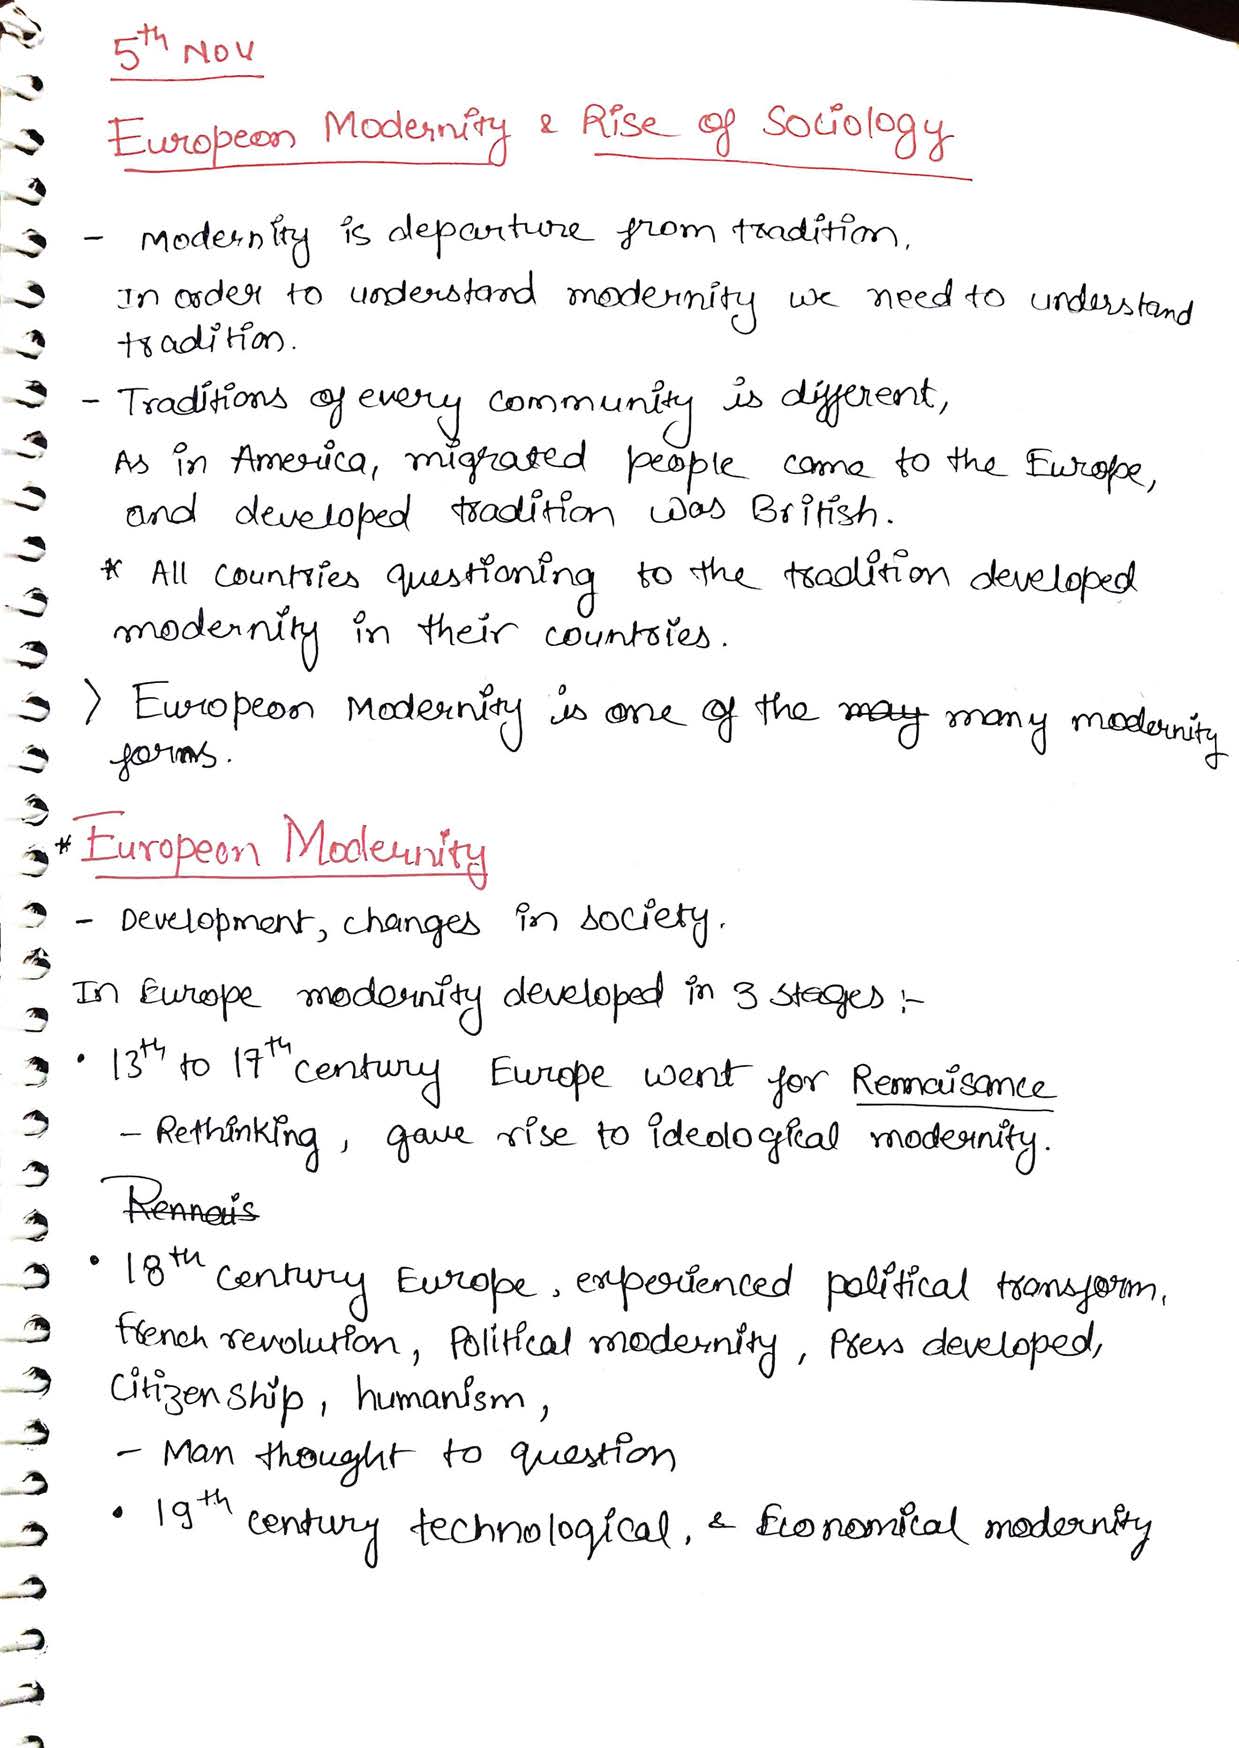 5th Nov
European Modernity & Rise of Sociology
- Modernity is departure from tradition.
In order to understand modernity we need to understand
tradition.
- Traditions of every community is different,
As in America, migrated people came to the Europe,
and developed tradition was British.
* All countries questioning to the tradition developed
modernity in their countries.
> European Modernity is one of the may many modernity
forms.
* European Modernity
- Development, changes in society.
In Europe modernity developed in 3 stages :-
• 13th to 17th century Europe went for Rennaisance
- Rethinking, gave rise to ideological modernity.
Rennais
• 18th century Europe, experienced political transform,
French revolution, Political modernity, Press developed,
Citizenship, humanism,
- Man thought to question
• 19th century technological, & Economical modernity